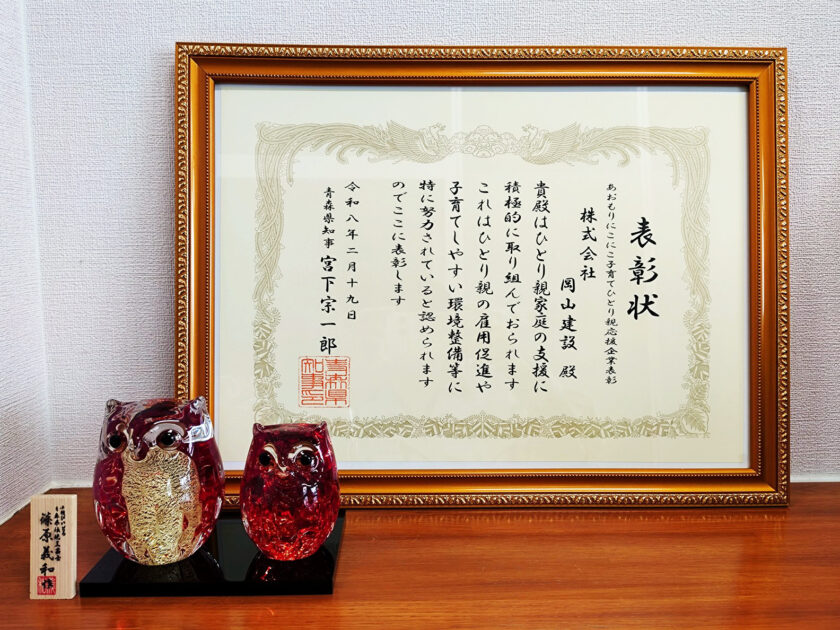 表彰状
あおもりにこにこ子育てひとり親応援企業表彰
株式会社
岡山建設 殿
貴殿はひとり親家庭の支援に
積極的に取り組んでおられます
これはひとり親の雇用促進や
子育てしやすい環境整備等に
特に努力されていると認められます
のでここに表彰します
令和八年二月十九日
青森県知事 宮下宗一郎
青森県
知事之印
藤原義和